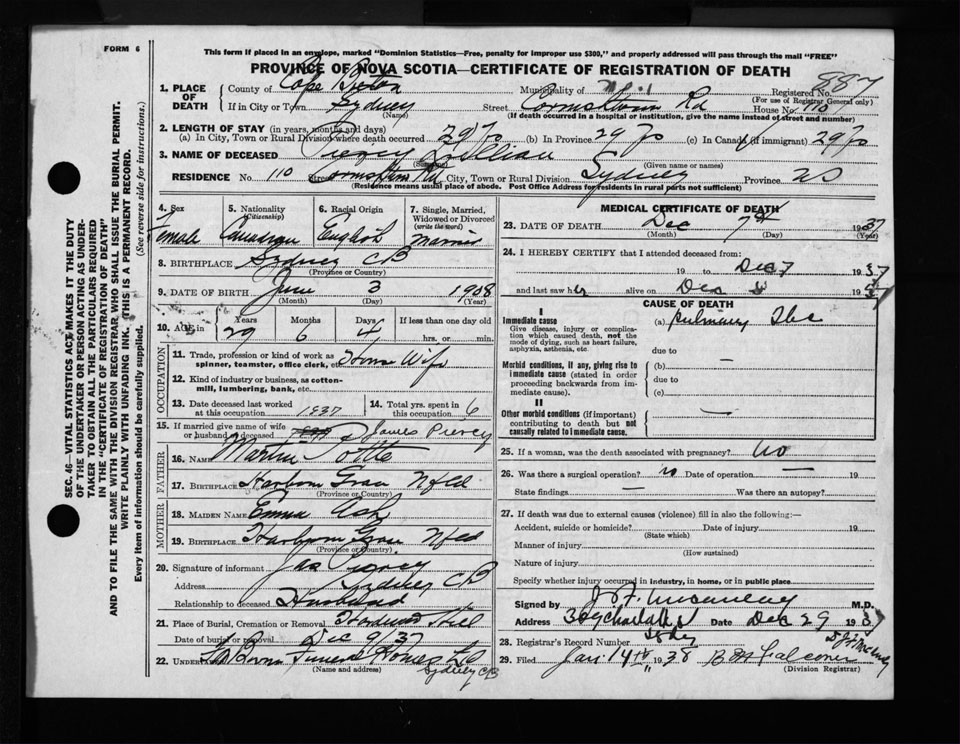 FORM 6
This form if placed in an envelope, marked "Dominion Statistics—Free, penalty for improper use $300," and properly addressed will pass through the mail "FREE"
PROVINCE OF NOVA SCOTIA—CERTIFICATE OF REGISTRATION OF DEATH
1. PLACE OF DEATH County of Cape Breton Municipality of Registered No. 887
(For use of Registrar General only)
If in City or Town Sydney Street Rd House No. 110
(Name) (If death occurred in a hospital or institution, give the name instead of street and number)
2. LENGTH OF STAY (in years, months and days)
(a) In City, Town or Rural Division where death occurred 29 (b) In Province 29 (c) In Canada (if immigrant) 29
3. NAME OF DECEASED Piercy Lillian
(Given name or names)
RESIDENCE No. 110 Street Rd City, Town or Rural Division Sydney Province NS
(Residence means usual place of abode. Post Office Address for residents in rural parts not sufficient)
4. Sex Female
5. Nationality (Citizenship) Canadian
6. Racial Origin English
7. Single, Married, Widowed or Divorced (write the word) Married
8. BIRTHPLACE Sydney CB
(Province or Country)
9. DATE OF BIRTH June 3 1908
(Month) (Day) (Year)
10. AGE in Years Months Days If less than one day old
29 6 4 hrs. or min.
OCCUPATION
11. Trade, profession or kind of work as spinner, teamster, office clerk, etc. House Wife
12. Kind of industry or business, as cotton-mill, lumbering, bank, etc.
13. Date deceased last worked at this occupation 1937
14. Total yrs. spent in this occupation 6
15. If married give name of wife or husband of deceased James Piercy
FATHER
16. NAME Martin Pottle
17. BIRTHPLACE Harbour Grace Nfld
(Province or Country)
MOTHER
18. MAIDEN NAME Emma Ash
19. BIRTHPLACE Harbour Grace Nfld
(Province or Country)
20. Signature of informant Jas Piercy
Address Sydney CB
Relationship to deceased Husband
21. Place of Burial, Cremation or Removal Hill
Date of burial or removal Dec 9/37
22. UNDERTAKER Funeral Home Ltd
(Name and address) Sydney CB
MEDICAL CERTIFICATE OF DEATH
23. DATE OF DEATH Dec 7th 1937
(Month) (Day) (Year)
24. I HEREBY CERTIFY that I attended deceased from:
19 to Dec 7 1937
and last saw her alive on Dec 1937
CAUSE OF DEATH
I
Immediate cause
Give disease, injury or complication which caused death, not the mode of dying, such as heart failure, asphyxia, asthenia, etc.
(a) Pulmonary Tbc
due to
Morbid conditions, if any, giving rise to immediate cause (stated in order proceeding backwards from immediate cause).
(b) —
due to
(c)
II
Other morbid conditions (if important) contributing to death but not causally related to immediate cause. —
25. If a woman, was the death associated with pregnancy? No
26. Was there a surgical operation? No Date of operation — 19
State findings — Was there an autopsy?
27. If death was due to external causes (violence) fill in also the following:—
Accident, suicide or homicide? Date of injury 19
(State which)
Manner of injury
(How sustained)
Nature of injury
Specify whether injury occurred in industry, in home, or in public place
Signed by M.D.
Address Sydney Date Dec 29 1937
28. Registrar's Record Number
29. Filed Jan. 14th 1938 Falconer
(Division Registrar)
SEC. 46—VITAL STATISTICS ACT, MAKES IT THE DUTY
OF THE UNDERTAKER OR PERSON ACTING AS UNDER-
TAKER TO OBTAIN ALL THE PARTICULARS REQUIRED
IN THE "CERTIFICATE OF REGISTRATION OF DEATH"
AND TO FILE THE SAME WITH THE DIVISION REGISTRAR WHO SHALL ISSUE THE BURIAL PERMIT.
WRITE PLAINLY WITH UNFADING INK. (THIS IS A PERMANENT RECORD.
Every item of information should be carefully supplied. (See reverse side for instructions.)